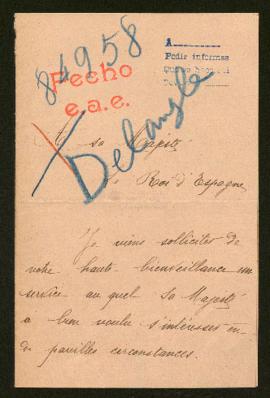 84958
A
Pedir informes
Fecho
e.a.e.
A sa Majesté
Delangle
Roi d'Espagne
Je viens solliciter de
votre haute bienveillance un
service au quel Sa Majesté
a bien voulu s'intéresser en
de pareilles circonstances.